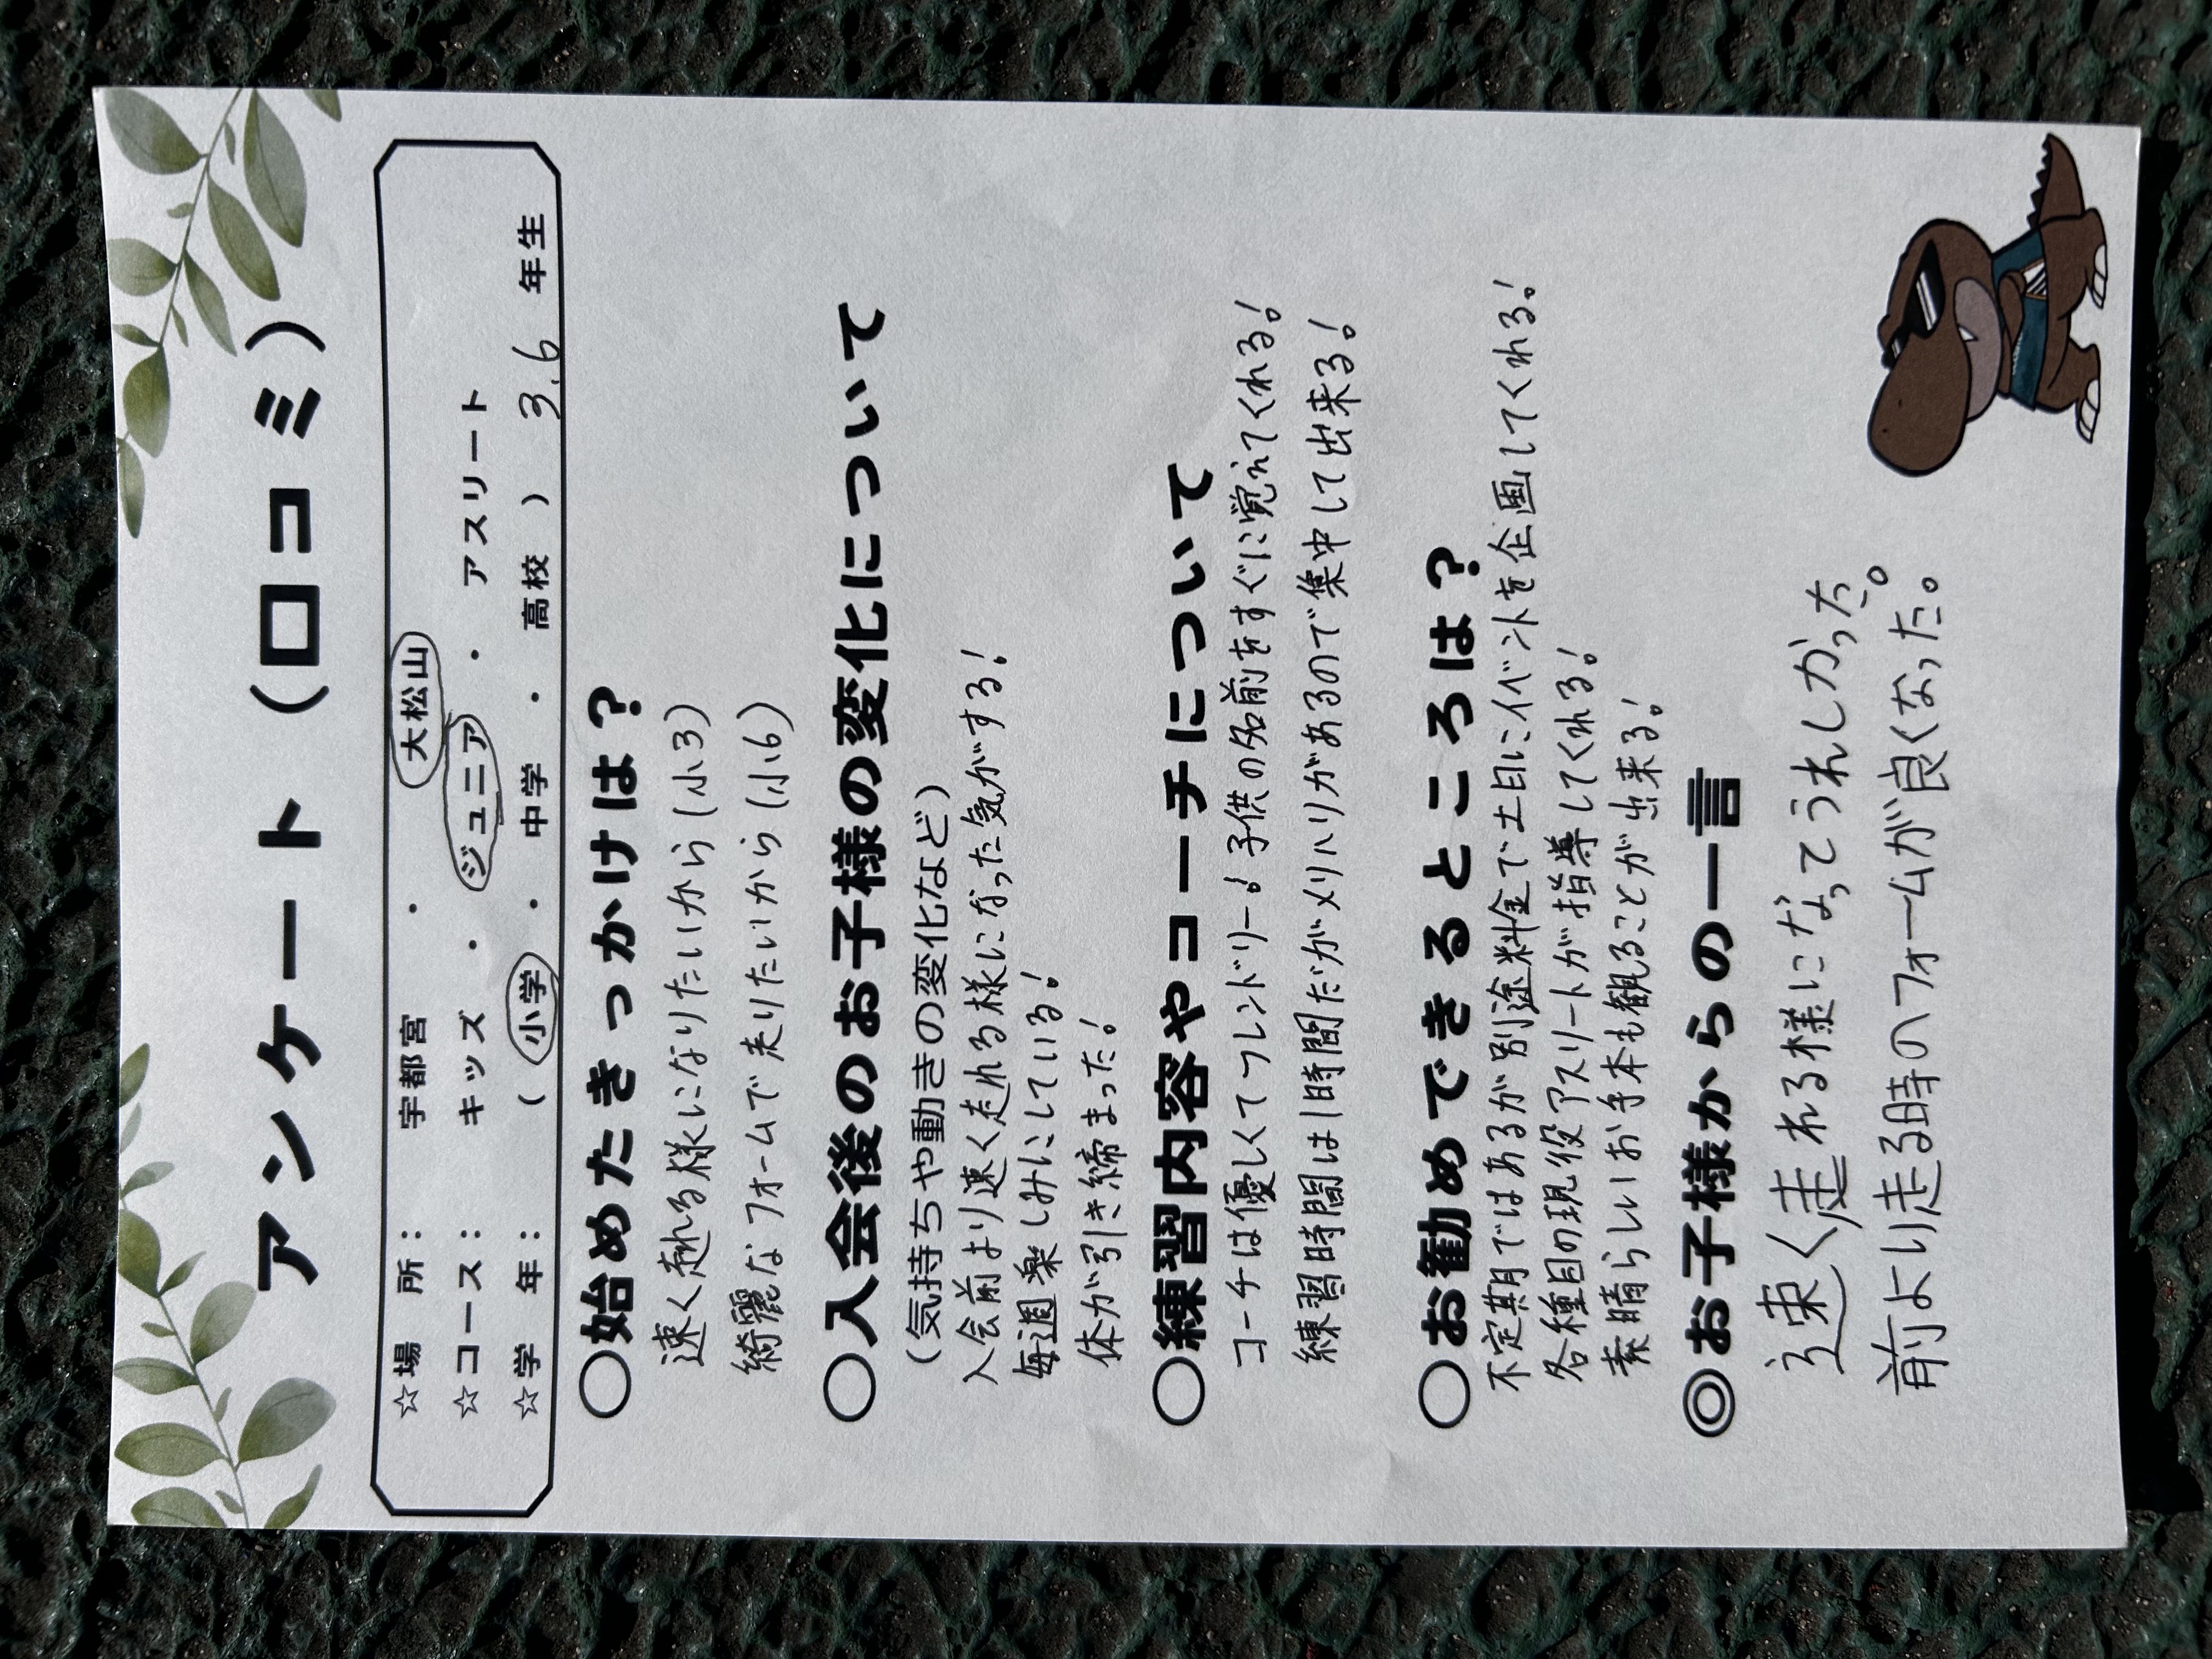 アンケート（口コミ）
☆場　所：　宇都宮　・　大松山
☆コース：　キッズ　・　ジュニア　・　アスリート
☆学　年：　（　小学　・　中学　・　高校　）　3.6　年生
○始めたきっかけは？
速く走れる様になりたいから（小3）
綺麗なフォームで走りたいから（小6）
○入会後のお子様の変化について
（気持ちや動きの変化など）
入会前より速く走れる様になった気がする！
毎週楽しみにしている！
体が引き締まった！
○練習内容やコーチについて
コーチは優しくてフレンドリー！子供の名前をすぐに覚えてくれる！
練習時間は1時間だがメリハリがあるので集中して出来る！
○お勧めできるところは？
不定期ではあるが別途料金で土日にイベントを企画してくれる！
各種目の現役アスリートが指導してくれる！
素晴らしいお手本も観ることが出来る！
◎お子様からの一言
速く走れる様になってうれしかった。
前より走る時のフォームが良くなった。